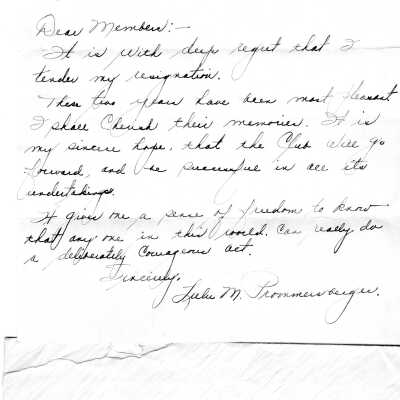 Dear Members:-
It is with deep regret that I
tender my resignation.
These two years have been most pleasant
I shall Cherish their memories. It is
my sincere hope, that the Club will go
forward, and be successful in all its
undertakings.
It gives me a sense of freedom to know
that any one in this world, can really do
a deliberately Courageous act.
Sincerely,
M. Prommersberger.